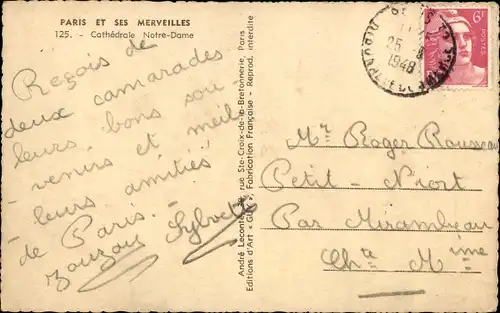 PARIS ET SES MERVEILLES
125. - Cathédrale Notre-Dame
Reçois de
deux camarades
leurs bons sou-
-venirs et meil-
-leurs amitiés
de Paris.
Zouzou Sylvette
André Leconte, rue Ste-Croix-de-la-Bretonnerie, Paris
Editions d'Art « Fabrication Française - Reprod. interdite
6F
POSTES
25
1948
Mr Roger Rousseau
Petit-Niort
Par Mirambeau
Chte Mime